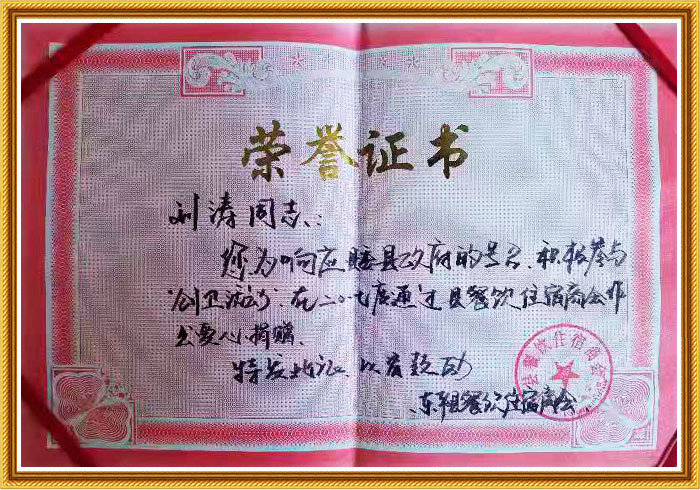 荣誉证书
刘涛同志:
您为响应睢县政府的号召,积极参与
"创卫活动",在二〇一七年度通过县餐饮住宿商会作
出爱心捐赠。
特发此证,以资鼓励
县餐饮住宿商会
县餐饮住宿商会